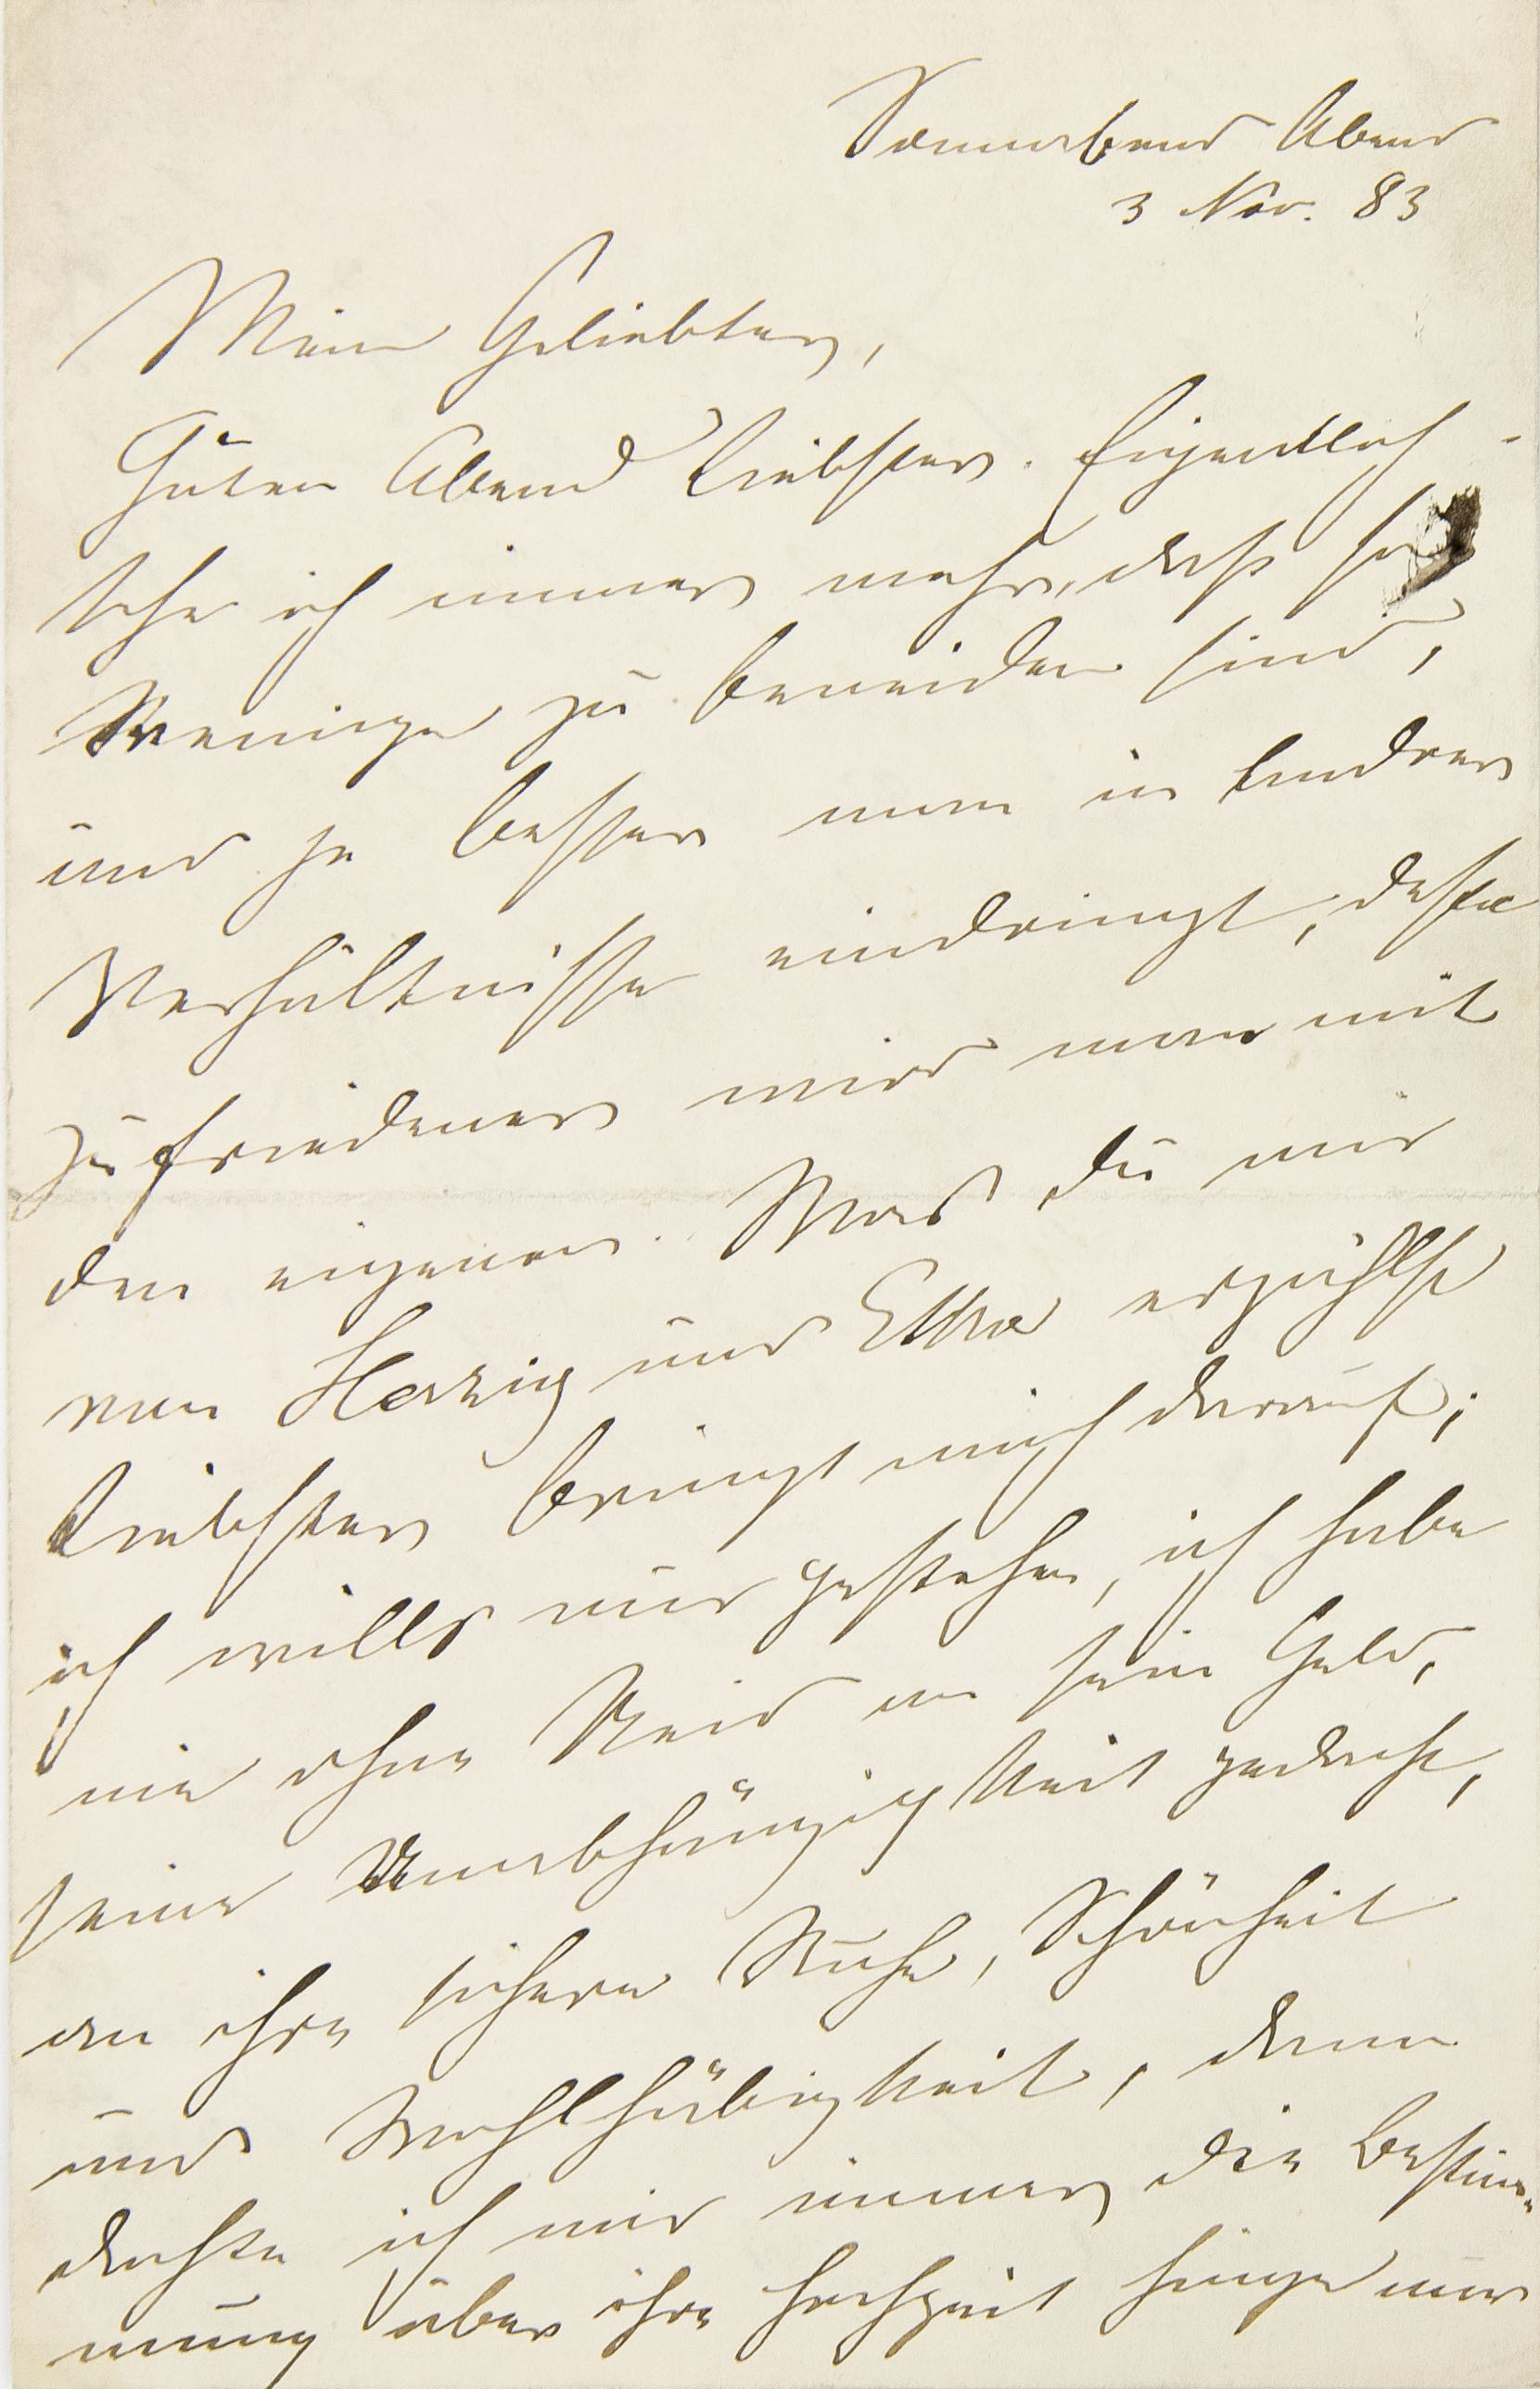 Sonnabend Abend
3 Nov. 83
Mein Geliebter,
Guten Abend Liebster. Eigentlich
sehe ich immer mehr, daß so
Wenige zu beneiden sind,
und je besser man in Andrer
Verhältnisse eindringt, desto
zufriedener wird man mit
den eigenen. Was Du mir
von Herzig und Elka erzählst
Liebster bringt mich darauf;
ich wills nur gestehen, ich habe
nie ohne Neid an sein Geld,
seine Unabhängigkeit gedacht,
an ihre sichere Ruhe, Schönheit
und Wohlhäbigkeit, denn
dachte ich mir immer die Bestim-
mung über ihre Hochzeit hinge nur